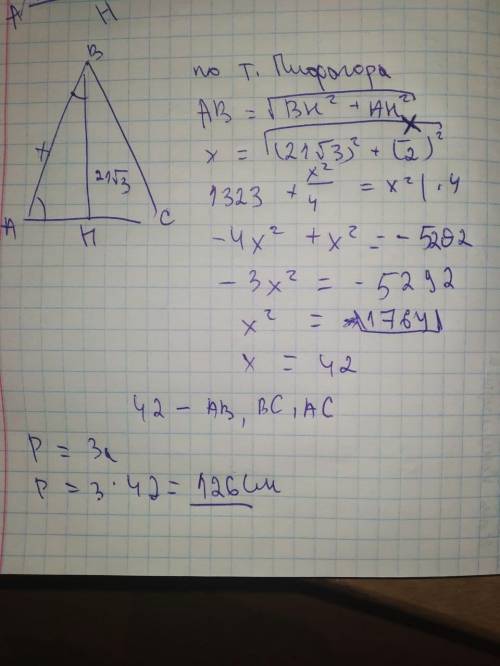 A H
B
x
21√3
A H C
по т. Пифагора
AB = √BH² + AH²
x = √(21√3)² + (x/2)²
1323 + x²/4 = x² | · 4
-4x² + x² = -5292
-3x² = -5292
x² = 1764
x = 42
42 - AB, BC, AC
P = 3a
P = 3 · 42 = 126 см